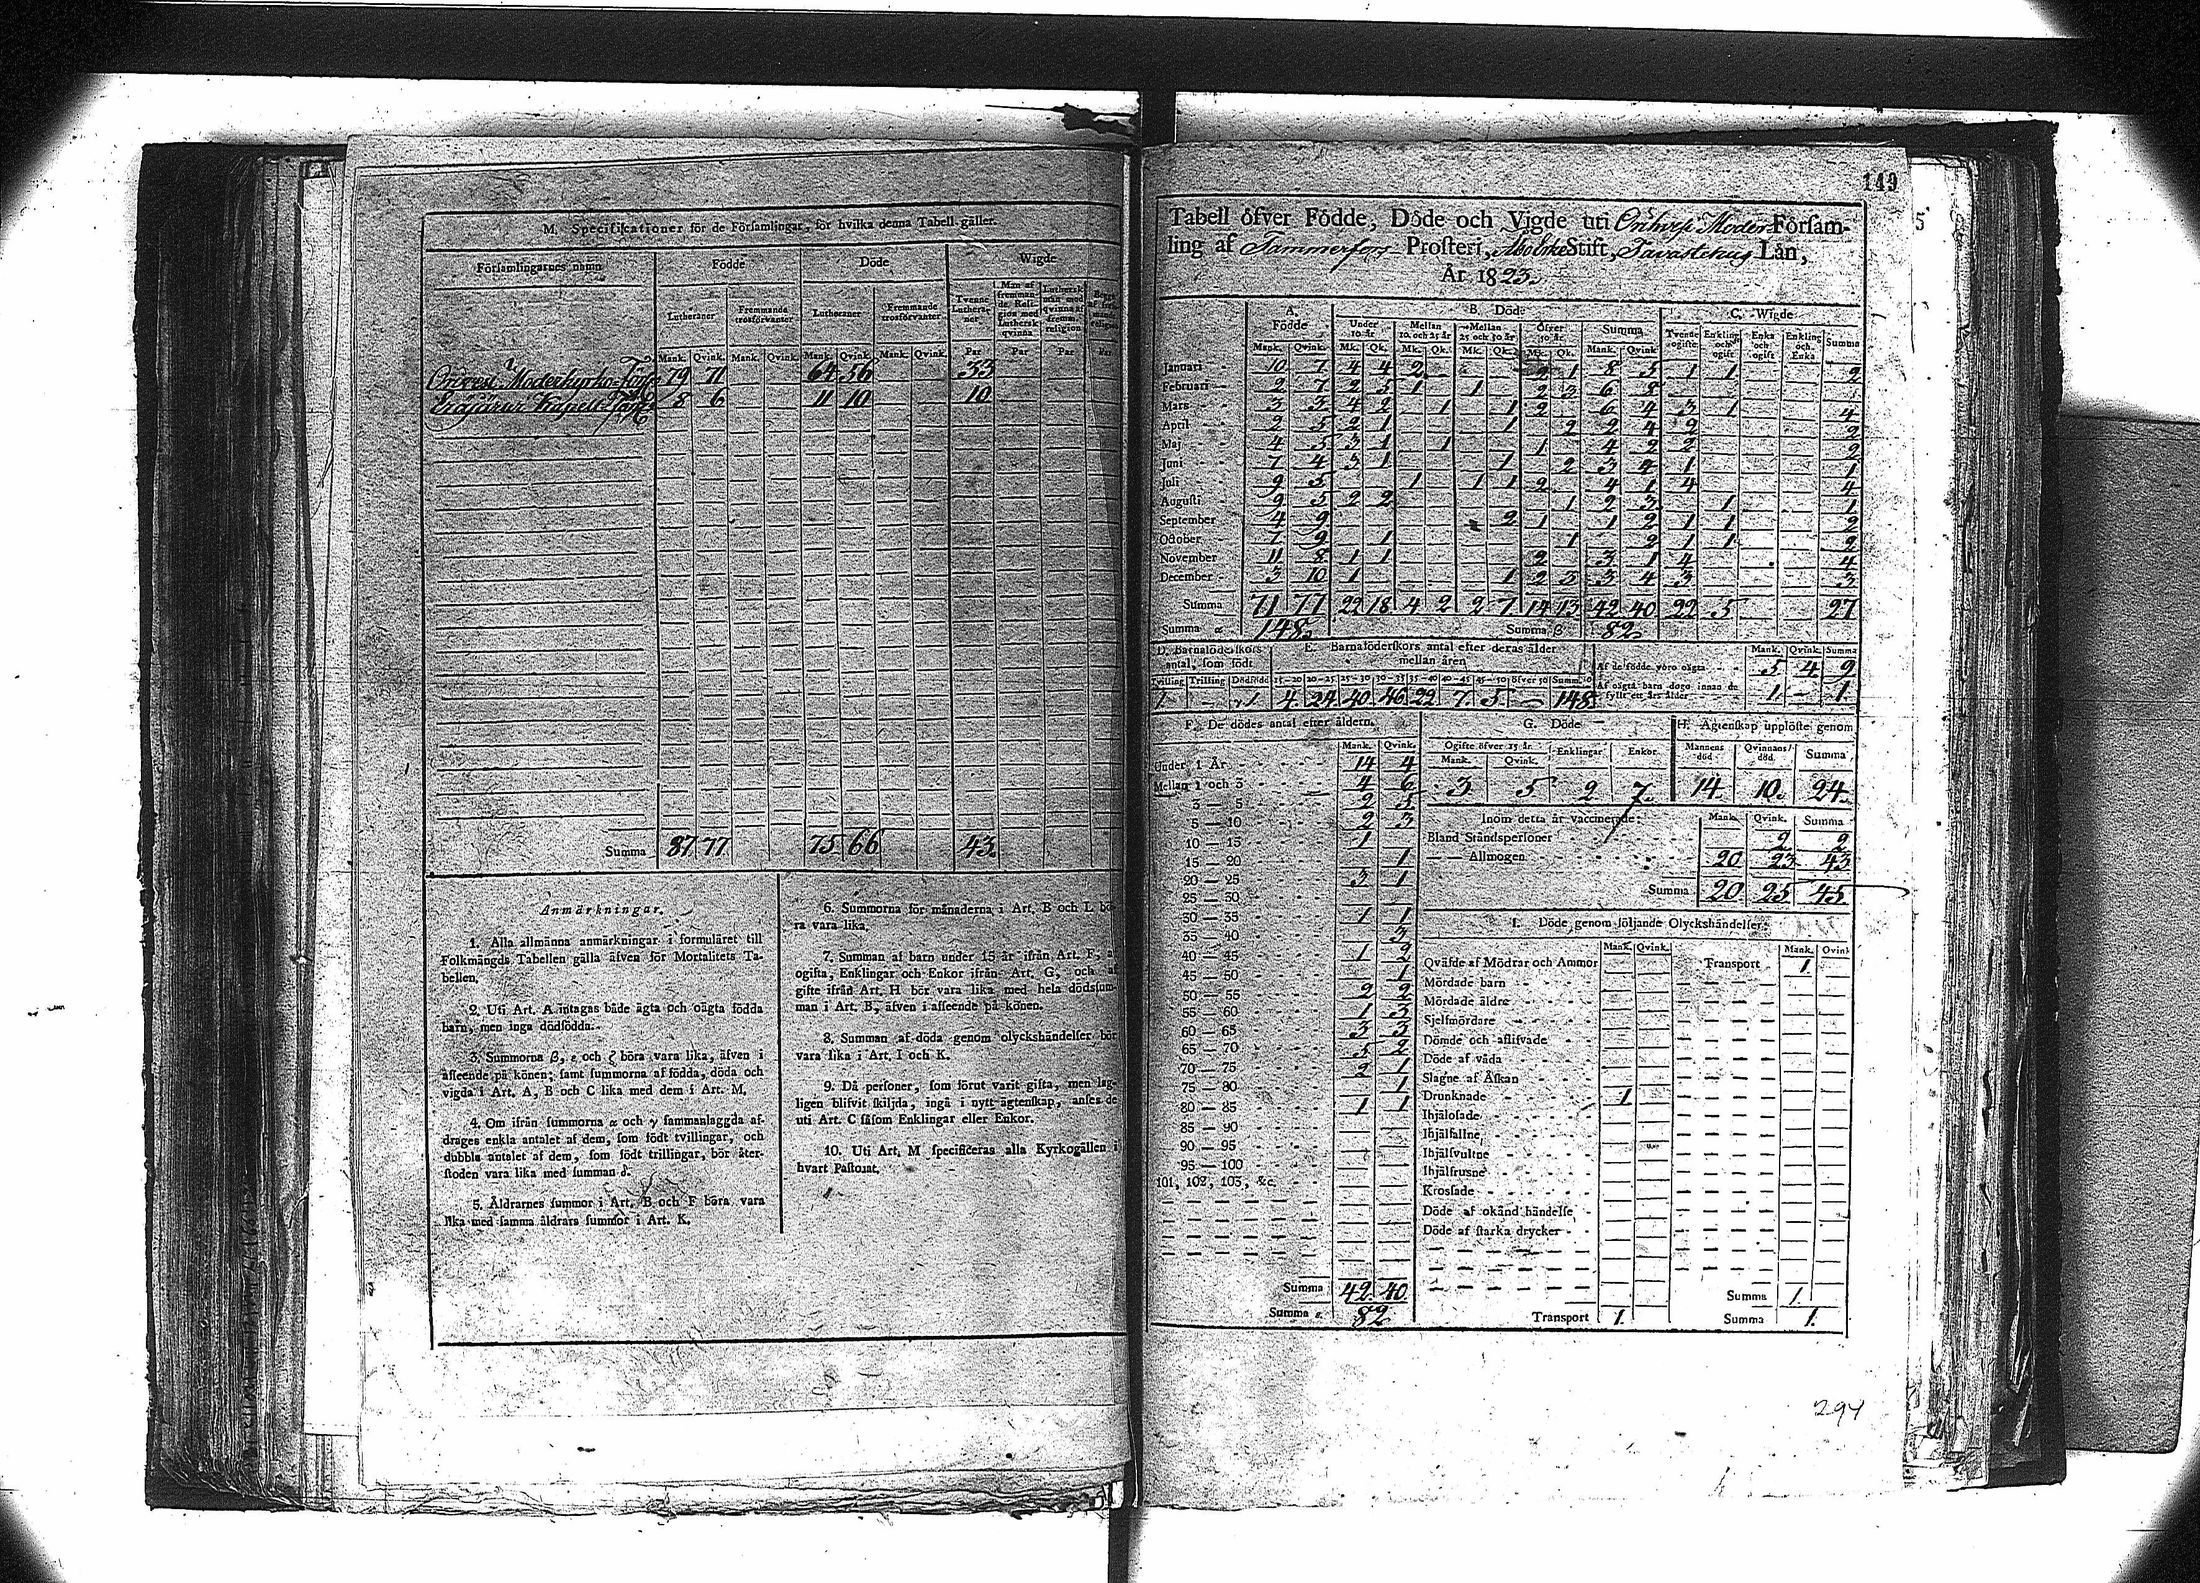 M. Specifikationer för de Församlingar, för hvilka denna Tabell gäller.
Församlingarnes namn Födde Döde Wigde
Lutheraner Fremmande trosförvanter Lutheraner Fremmande trosförvanter Tvenne Lutheraner Man af fremmande Religion med Luthersk qvinna Luthersk man med qvinna af fremm. religion
Mank. Qvink. Mank. Qvink. Mank. Qvink. Mank. Qvink. Par Par Par Par
Orivesi Moderkyrko-Förs: 79 71 64 56 33
Eräjärvi Kapell 8 6 11 10 10
Summa 87 77 75 66 43
Anmärkningar.
1. Alla allmänna anmärkningar i formuläret till
Folkmängds Tabellen gälla äfven för Mortalitets Ta-
bellen.
2. Uti Art. A intagas både ägta och oägta födda
barn, men inga dödfödda.
3. Summorna β, ε och ζ böra vara lika, äfven i
afseende på könen; samt summorna af födda, döda och
vigda i Art. A, B och C lika med dem i Art. M.
4. Om ifrån summorna α och γ sammanlaggda af-
drages enkla antalet af dem, som födt tvillingar, och
dubbla antalet af dem, som födt trillingar, bör åter-
stoden vara lika med summan δ.
5. Åldrarnes summor i Art. B och F böra vara
lika med samma åldrars summor i Art. K.
6. Summorna för månaderna i Art. B och L bö-
ra vara lika.
7. Summan af barn under 15 år ifrån Art. F, a
ogifta, Enklingar och Enkor ifrån Art. G, och af
gifte ifrån Art. H bör vara lika med hela dödssum-
man i Art. B, äfven i afseende på könen.
8. Summan af döda genom olyckshändelser bör
vara lika i Art. I och K.
9. Då personer, som förut varit gifta, men lag-
ligen blifvit skiljda, ingå i nytt ägtenskap, anses de
uti Art. C såsom Enklingar eller Enkor.
10. Uti Art. M specificeras alla Kyrkogällen i
hvart Pastorat.
149
5
Tabell öfver Födde, Döde och Vigde uti Orihvesi Moder Församling
ling af Tammerfors Prosteri, Åbo Erke Stift, Tavastehus Län,
År 1823.
A. Födde B. Döde C. Wigde
Under 10 år Mellan 10 och 25 år Mellan 25 och 50 år Öfver 50 år Summa Tvenne ogifte Enkling och ogift Enka och ogift Enkling och Enka Summa
Mank. Qvink. Mk. Qk. Mk. Qk. Mk. Qk. Mk. Qk. Mank. Qvink
Januari 10 7 4 4 2 2 1 8 5 1 1 2
Februari 2 7 2 5 1 1 2 3 6 8
Mars 3 3 4 2 1 1 2 6 4 3 1 4
April 2 5 2 1 1 2 2 4 2 2
Maj 4 5 3 1 1 1 4 2 2 2
Juni 7 4 3 1 1 2 3 4 1 1
Juli 9 5 1 1 1 2 4 1 4 4
Augusti 9 5 2 2 1 2 3 1 1
September 4 9 2 1 1 2 1 1 2
October 7 9 1 1 2 1 1 2
November 11 8 1 1 2 3 1 4 4
December 3 10 1 1 2 3 3 4 3 3
Summa 71 77 22 18 4 2 2 7 14 13 42 40 22 5 27
Summa α 148. Summa β 82.
D. Barnaföderskors antal, som födt E. Barnaföderskors antal efter deras ålder mellan åren Mank. Qvink. Summa
Tvilling Trilling Dödfödde 15—20 20—25 25—30 30—35 35—40 40—45 45—50 öfver 50 Summa δ
1. 1. 4. 24. 40. 46. 22 7. 5. — 148.
Af de födde voro oägta 5 4 9
Af oägta barn dogo innan de fyllt ett års ålder 1. — 1.
F. De dödes antal efter åldern.
Mank. Qvink.
Under 1 År 14 4
Mellan 1 och 3 4 6
3 — 5 2 5
5 — 10 2 3
10 — 15 1
15 — 20 1
20 — 25 3 1
25 — 30
30 — 35 1 1
35 — 40 3
40 — 45 1 2
45 — 50 1
50 — 55 2 2
55 — 60 1 3
60 — 65 3 3
65 — 70 5 2
70 — 75 2 1
75 — 80 1
80 — 85 1 1
85 — 90
90 — 95
95 — 100
101, 102, 103, &c.
Summa 42. 40.
Summa ε. 82
G. Döde H. Ägtenskap upplöste genom
Ogifte öfver 15 år. Enklingar Enkor Mannens död Qvinnans död. Summa
Mank. Qvink.
3 5 2 7. 14. 10. 24.
Inom detta år vaccinerade: Mank. Qvink. Summa
Bland Ståndspersoner 2 2
— — Allmogen 20 23 43
Summa 20 25 45.
I. Döde genom följande Olyckshändelser:
Mank. Qvink. Mank. Qvink
Qväfde af Mödrar och Ammor Transport 1.
Mördade barn
Mördade äldre
Sjelfmördare
Dömde och aflifvade
Döde af våda
Slagne af Åskan
Drunknade 1
Ihjälosade
Ihjälfallne
Ihjälsvultne
Ihjälfrusne
Krossade
Döde af okänd händelse
Döde af starka drycker
Summa 1.
Transport 1. Summa 1.
294